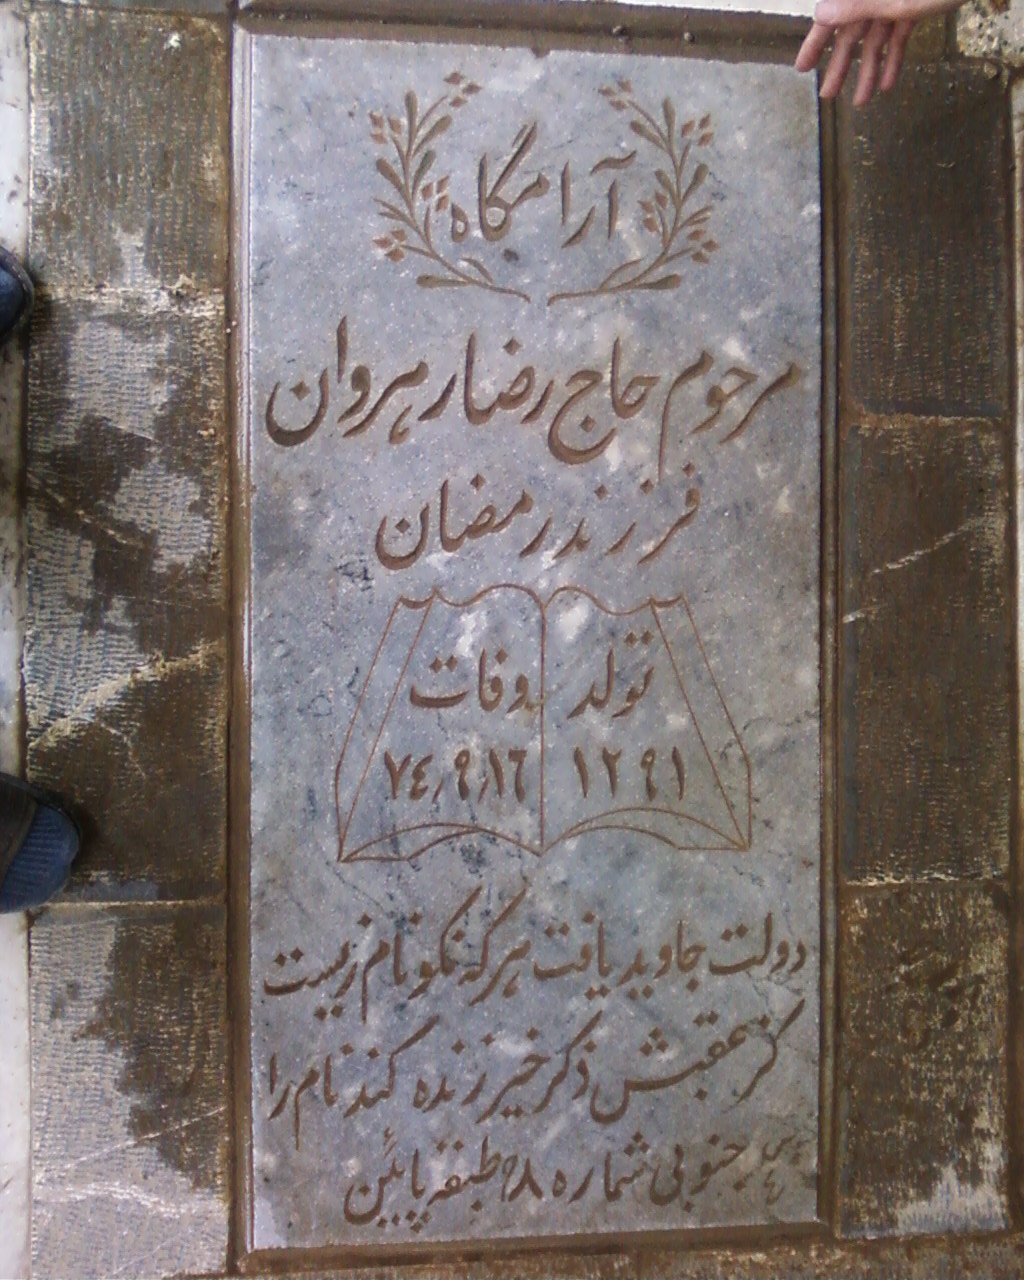 آرامگاه
مرحوم حاج رضا رهروان
فرزند رمضان
تولد وفات
۱۲۹۱ ۷٤٫۹٫۱٦
دولت جاوید یافت هرکه نکو نام زیست
کز عقبش ذکر خیر زنده کند نام را
جنوبی شماره ۸ طبقه پائین